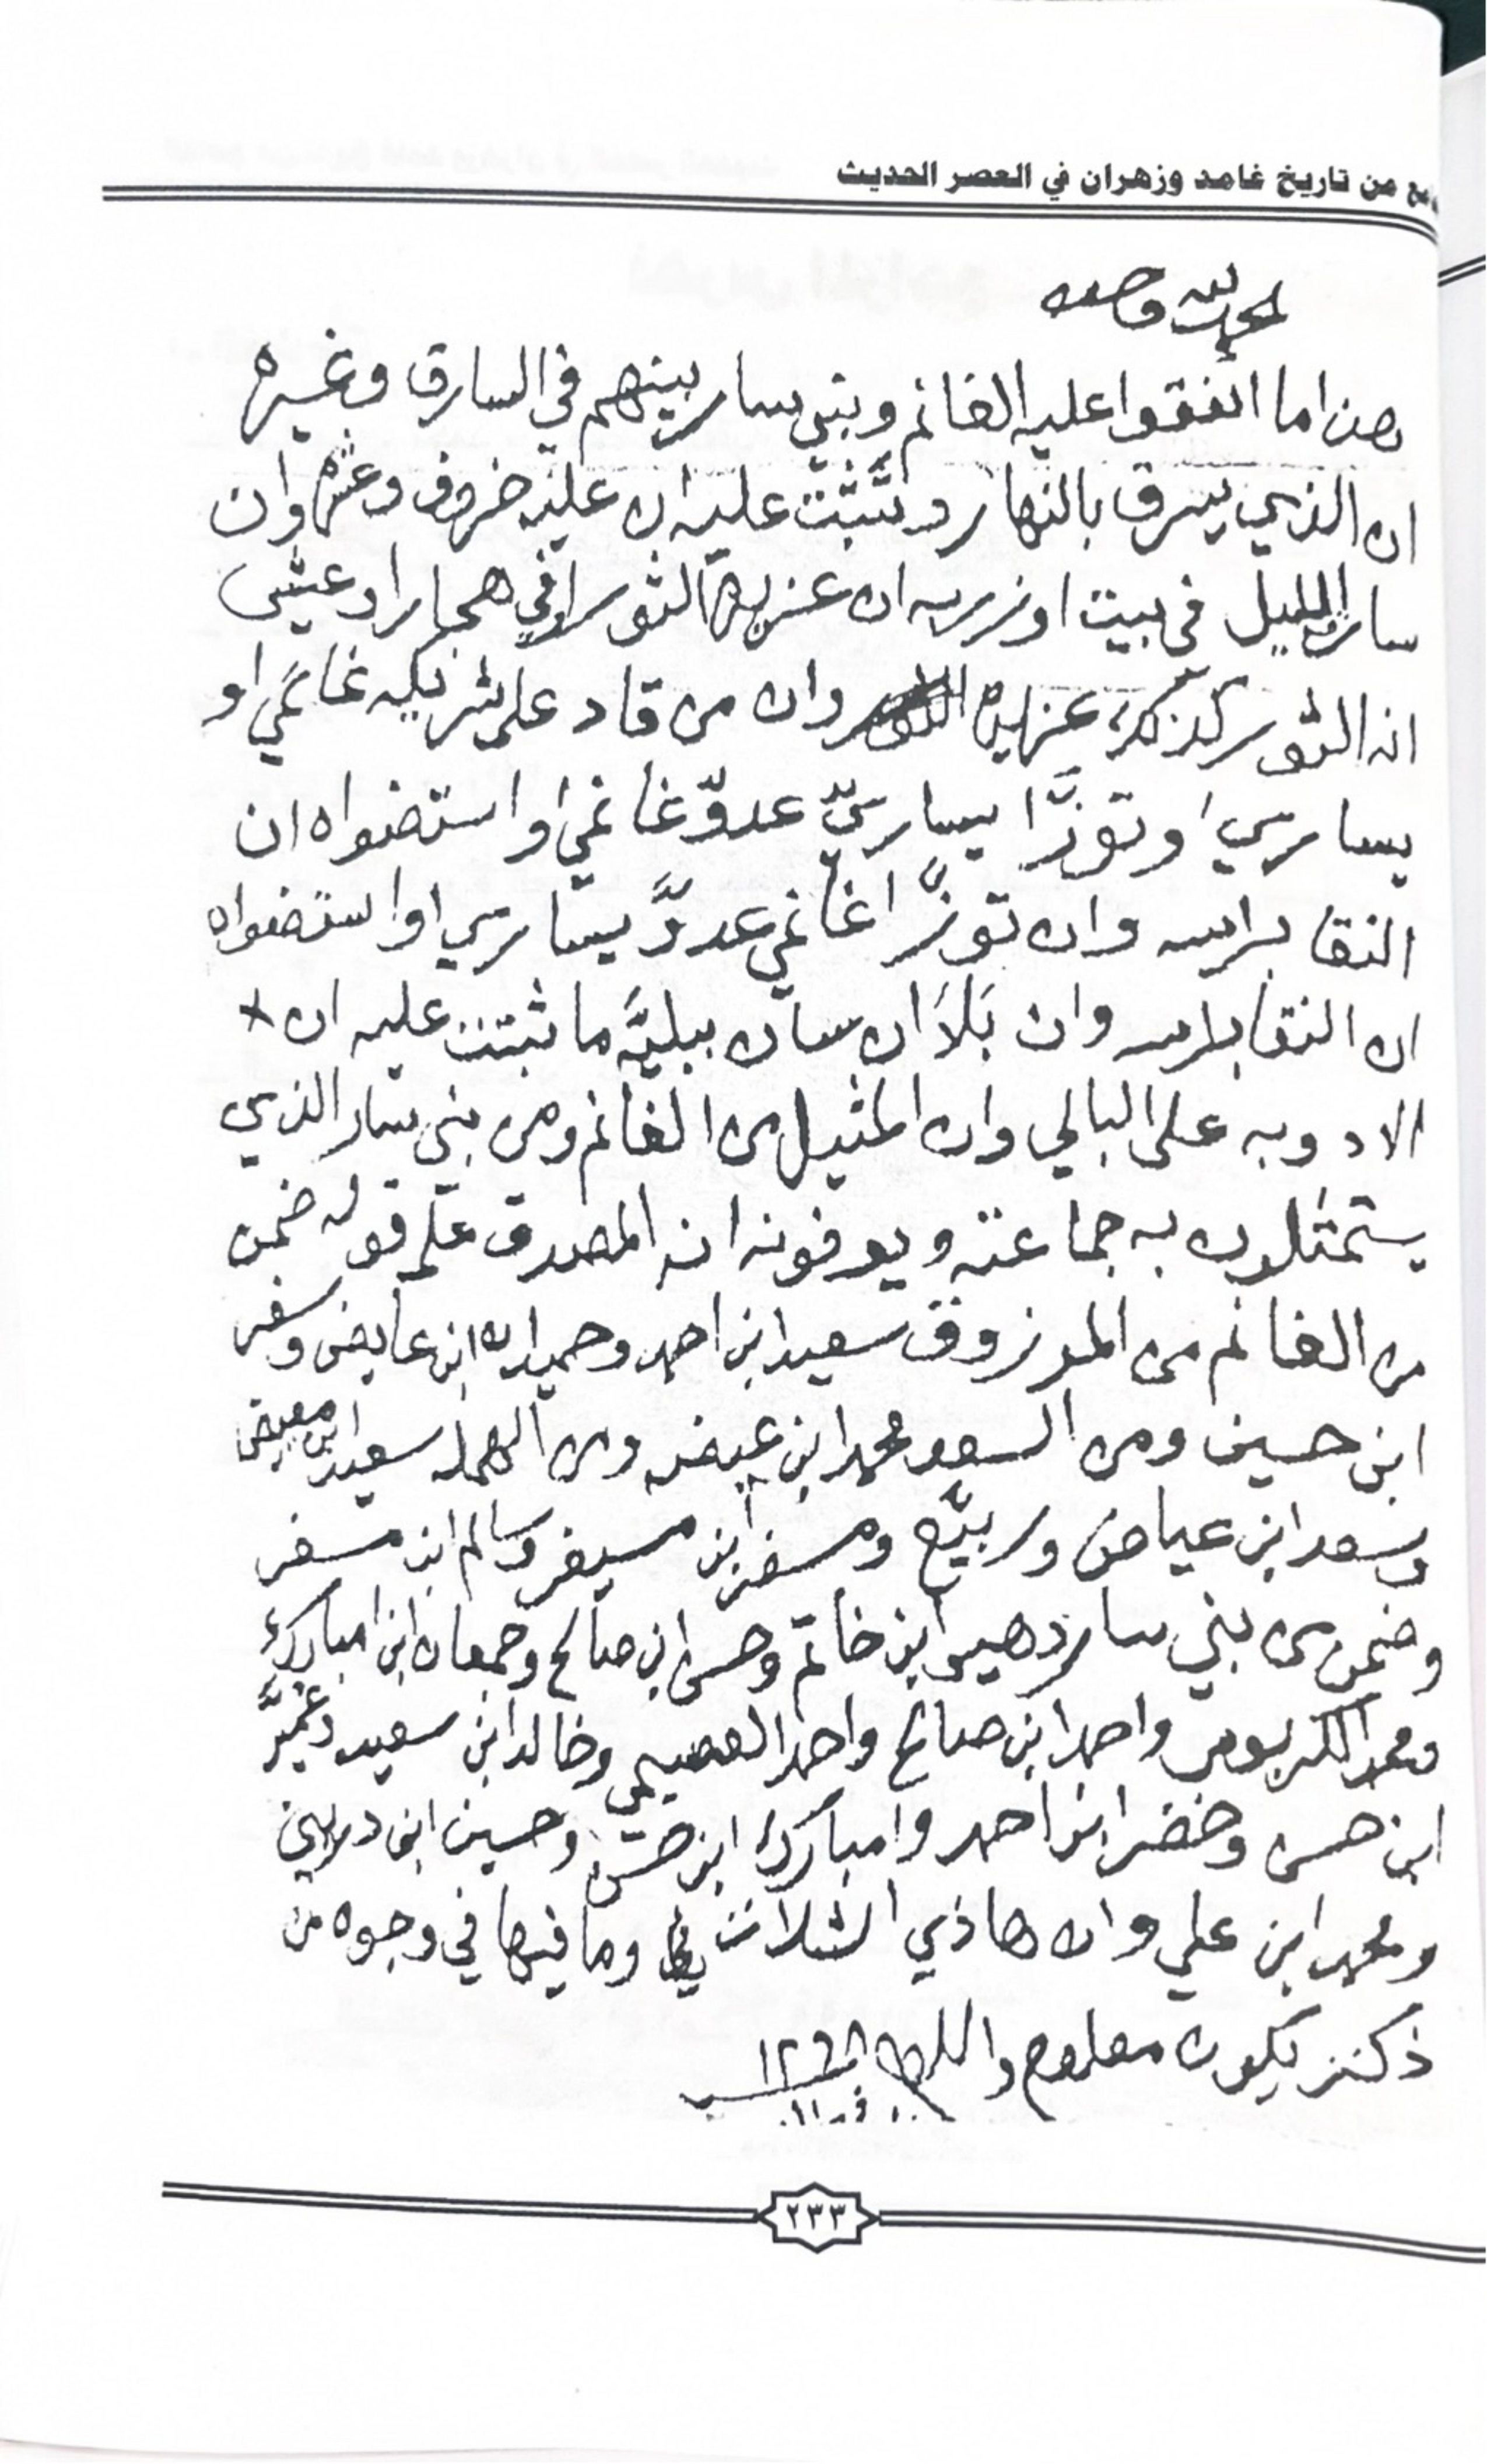 من تاريخ غامد وزهران في العصر الحديث
الحمد لله وحده
هذا ما اتفقوا عليه الغانم وبني سار بينهم في السارق وغيره
ان الذي يسرق بالنهار وتثبت عليه ان عليه خروف وعشره وان
سار الليل في بيت او زربه ان عزيره الثور او في هجار او عشى
انه الثور كذلك عزيره وان من قاد على شريكه غانمي او
يساري او توزّا يساريّ عدوّ غانمي او استضواه ان
النقا براسه وان توزّا غانمي عدوّ يساري او استضواه
ان النقا براسه وان بَلاَ انسان ببليَّه ما ثبتت عليه ان
الادوبه على البالي وان المثيل من الغانم ومن بني سار الذي
يستمثلون به جماعته ويعرفونه انه المصدوق على قوله ضمن
من الغانم من المرزوق سعيد ابن احمد وحمدان ابن عايض وسفر
ابن حسين ومن السعد محمد ابن عيضه ومن الهمله سعيد ابن معيض
وسعد ابن عياض وربيّع ومسفر ابن مسيفر وسالم ابن مسفر
وضمن من بني سار دهيس ابن خاتم وحسن ابن صالح وجمعان ابن امبارك
ومحمد واحمد ابن صالح واحمد العصيمي وخالد ابن سعيد
ابن حسن وخضر ابن احمد وامبارك ابن حسن وحسين ابن
ومحمد ابن علي وان هاذي الثلاث وما فيها في وجوه من
ذكر يكون معلوم والله
٢٣٣